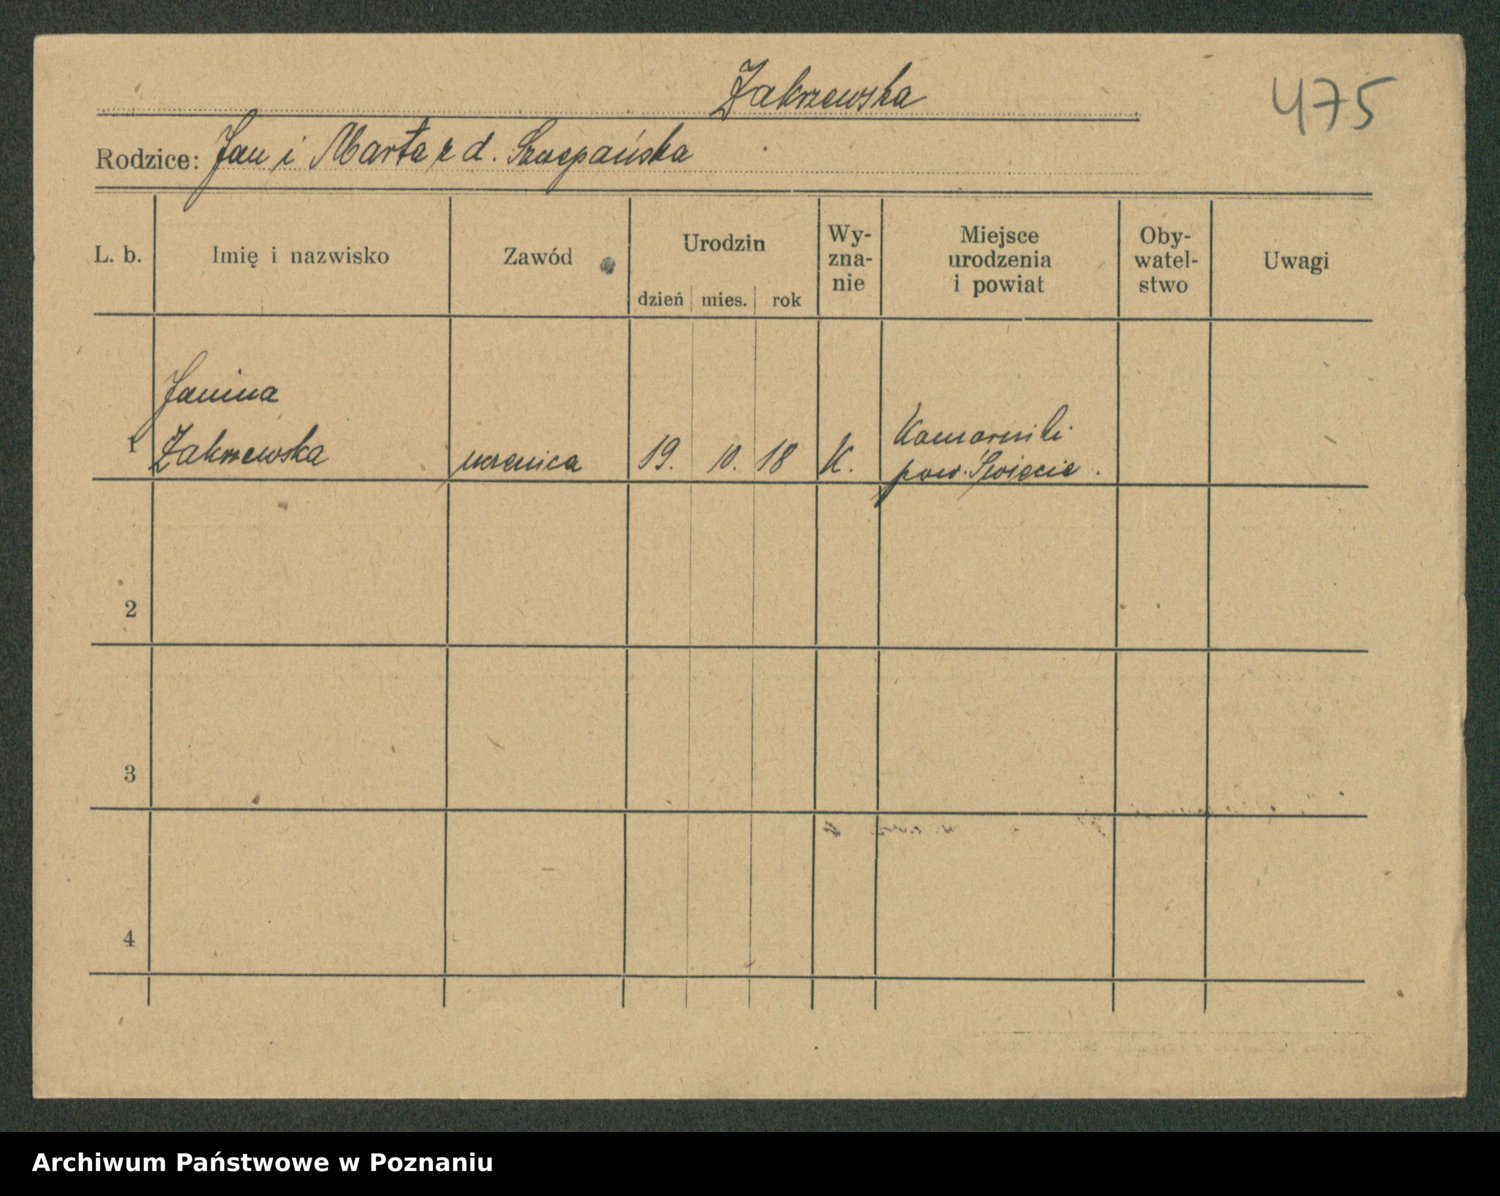 Zakrzewska
475
Rodzice: Jan i Marta z d. Szczepańska
L. b.
Imię i nazwisko
Zawód
Urodzin
dzień mies. rok
Wy-
zna-
nie
Miejsce
urodzenia
i powiat
Oby-
watel-
stwo
Uwagi
Janina
1 Zakrzewska uczenica 19. 10. 18 K.
pow. Świecie.
2
3
4
Archiwum Państwowe w Poznaniu